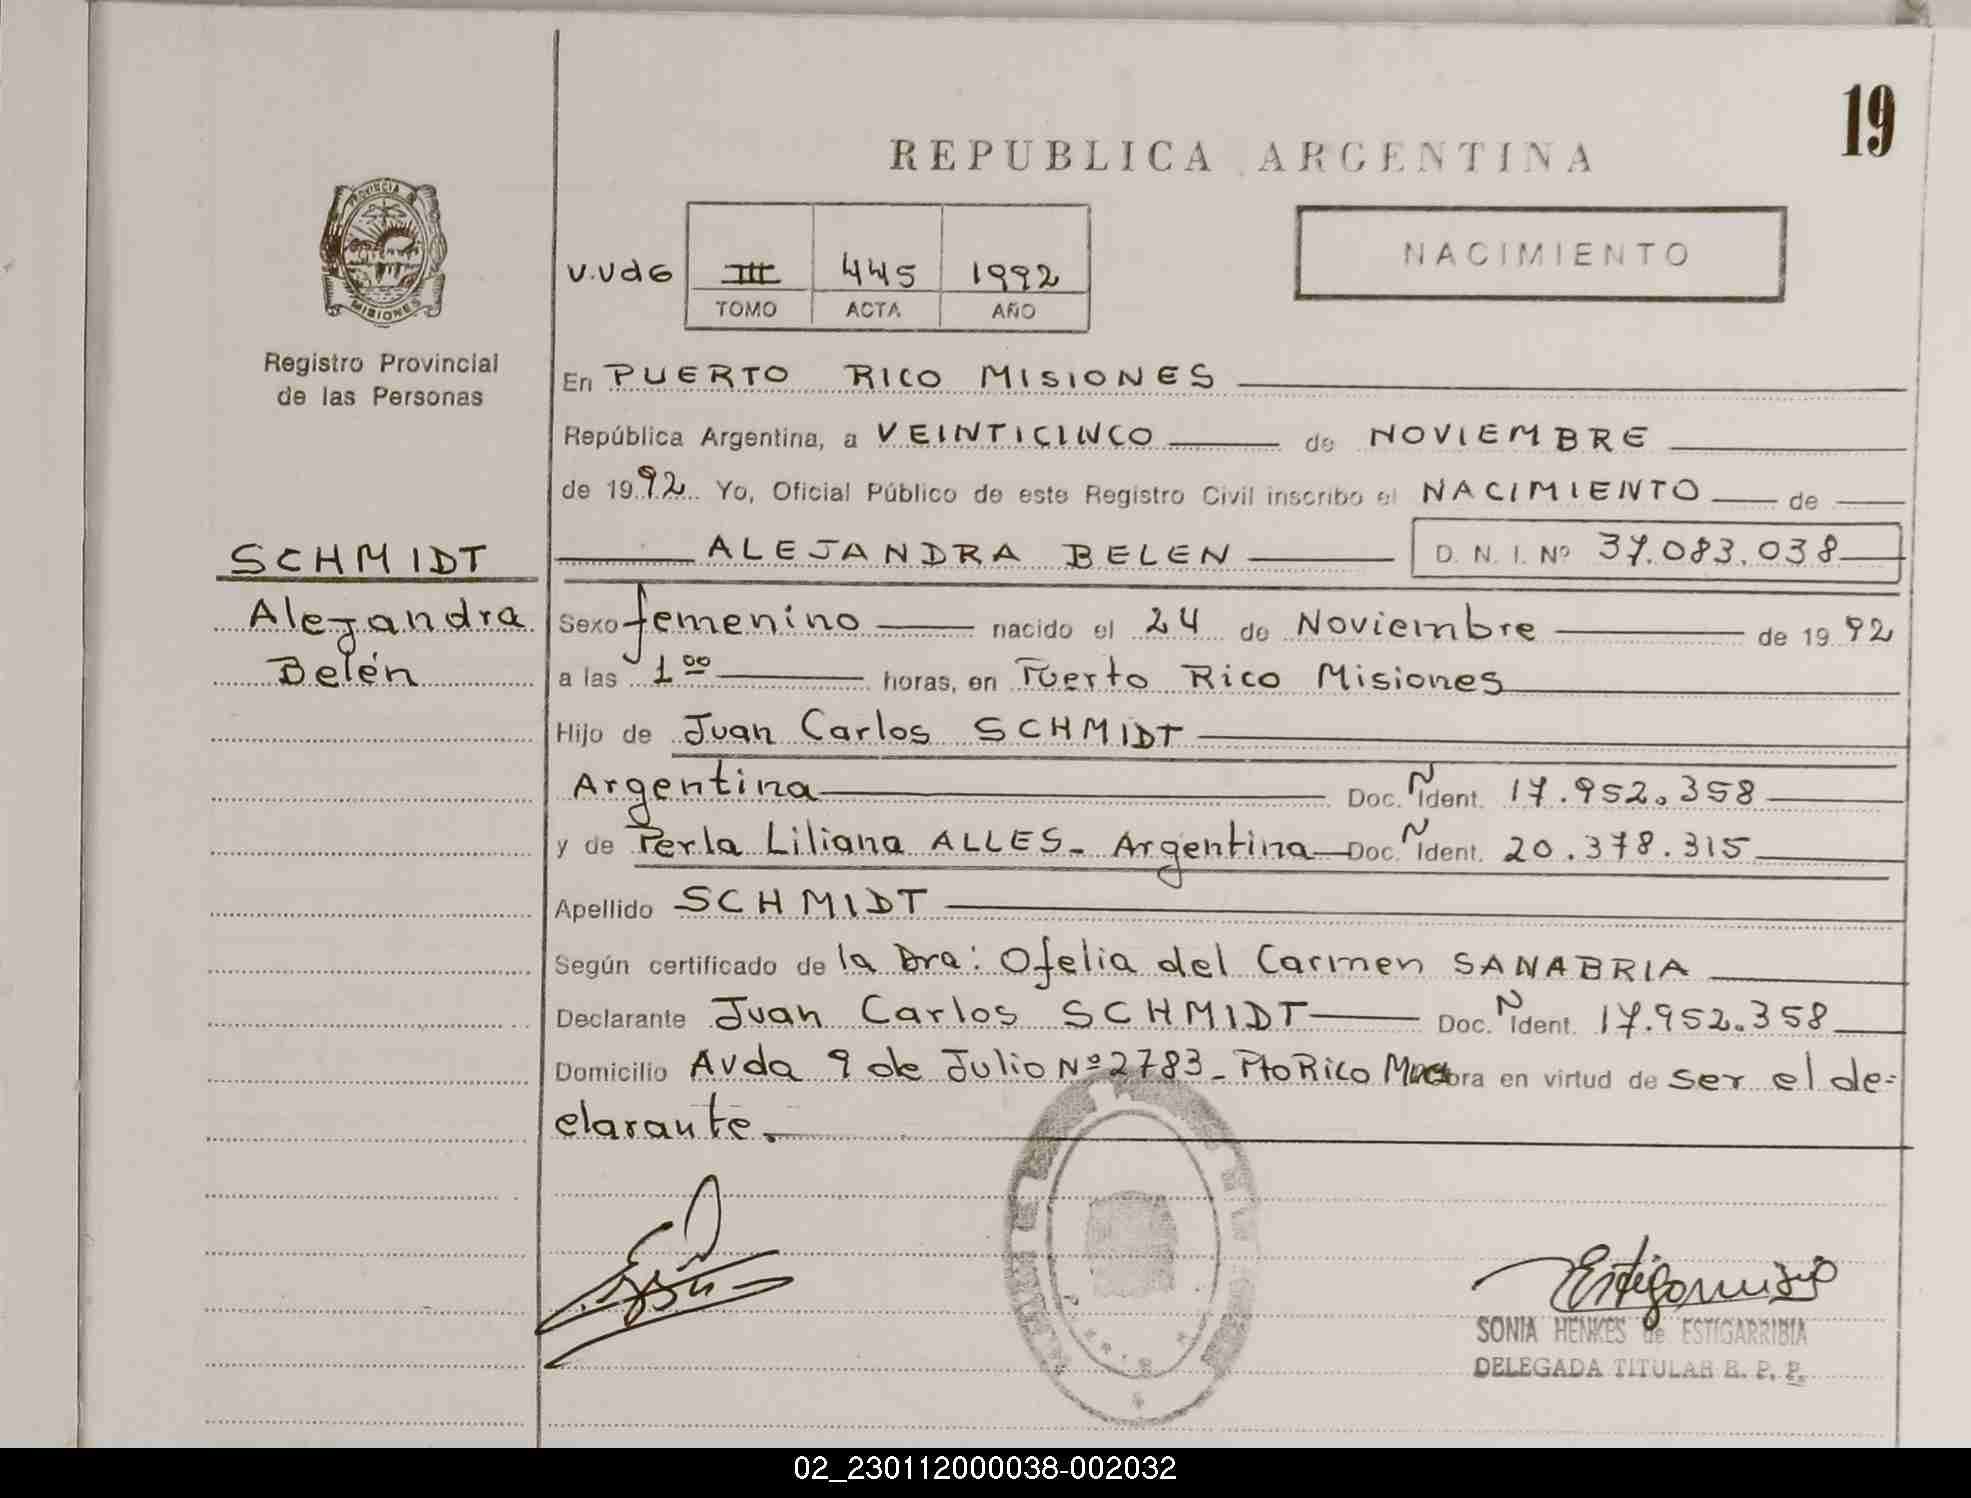 19
REPUBLICA ARGENTINA
PROVINCIA DE
MISIONES
Registro Provincial
de las Personas
V.VdG III 445 1992
TOMO ACTA AÑO
NACIMIENTO
En PUERTO RICO MISIONES
República Argentina, a VEINTICINCO de NOVIEMBRE
de 1992 Yo, Oficial Público de este Registro Civil inscribo el NACIMIENTO de
ALEJANDRA BELEN D. N. I. Nº 37.083.038
SCHMIDT
Alejandra
Belén
Sexo femenino nacido el 24 de Noviembre de 1992
a las 1⁰⁰ horas, en Puerto Rico Misiones
Hijo de Juan Carlos SCHMIDT
Argentina Doc. N Ident. 17.952.358
y de Perla Liliana ALLES- Argentina Doc. N Ident. 20.378.315
Apellido SCHMIDT
Según certificado de la Dra: Ofelia del Carmen SANABRIA
Declarante Juan Carlos SCHMIDT Doc. N Ident. 17.952.358
Domicilio Avda 9 de Julio Nº 2783- Pto Rico Mnes obra en virtud de ser el de=
clarante.
SONIA HENKES de ESTIGARRIBIA
DELEGADA TITULAR R. P. P.
02_230112000038-002032